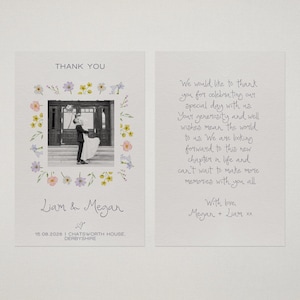 THANK YOU
Liam & Megan
15.08.2026 | CHATSWORTH HOUSE,
DERBYSHIRE
We would like to thank
you for celebrating our
special day with us.
Your generosity and well
wishes mean the world
to us. We are looking
forward to this new
chapter in life and
can't wait to make more
memories with you all.
With love,
Megan + Liam xx